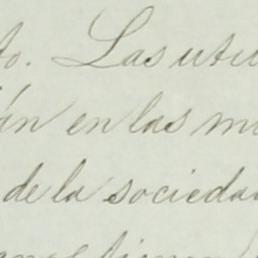 to. Las uti
án en las m
de la sociedad